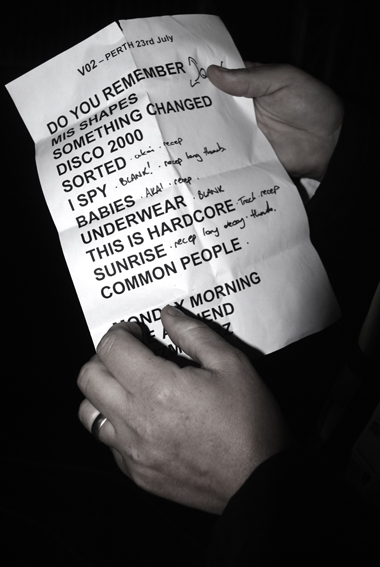 V02 – PERTH 23rd July
DO YOU REMEMBER
MIS SHAPES
SOMETHING CHANGED
DISCO 2000
SORTED . akai . recep
I SPY . BLANK! . recep long thunb.
BABIES . AKAI . recep .
UNDERWEAR . BLANK
THIS IS HARDCORE . Track recep
SUNRISE . recep long decay . thunb.
COMMON PEOPLE .
MONDAY MORNING